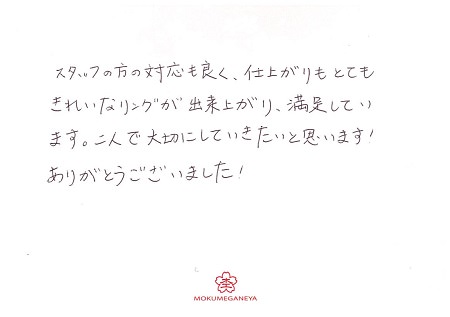 スタッフの方の対応も良く、仕上がりもとても
きれいなリングが出来上がり、満足してい
ます。二人で大切にしていきたいと思います!
ありがとうございました!
MOKUMEGANEYA